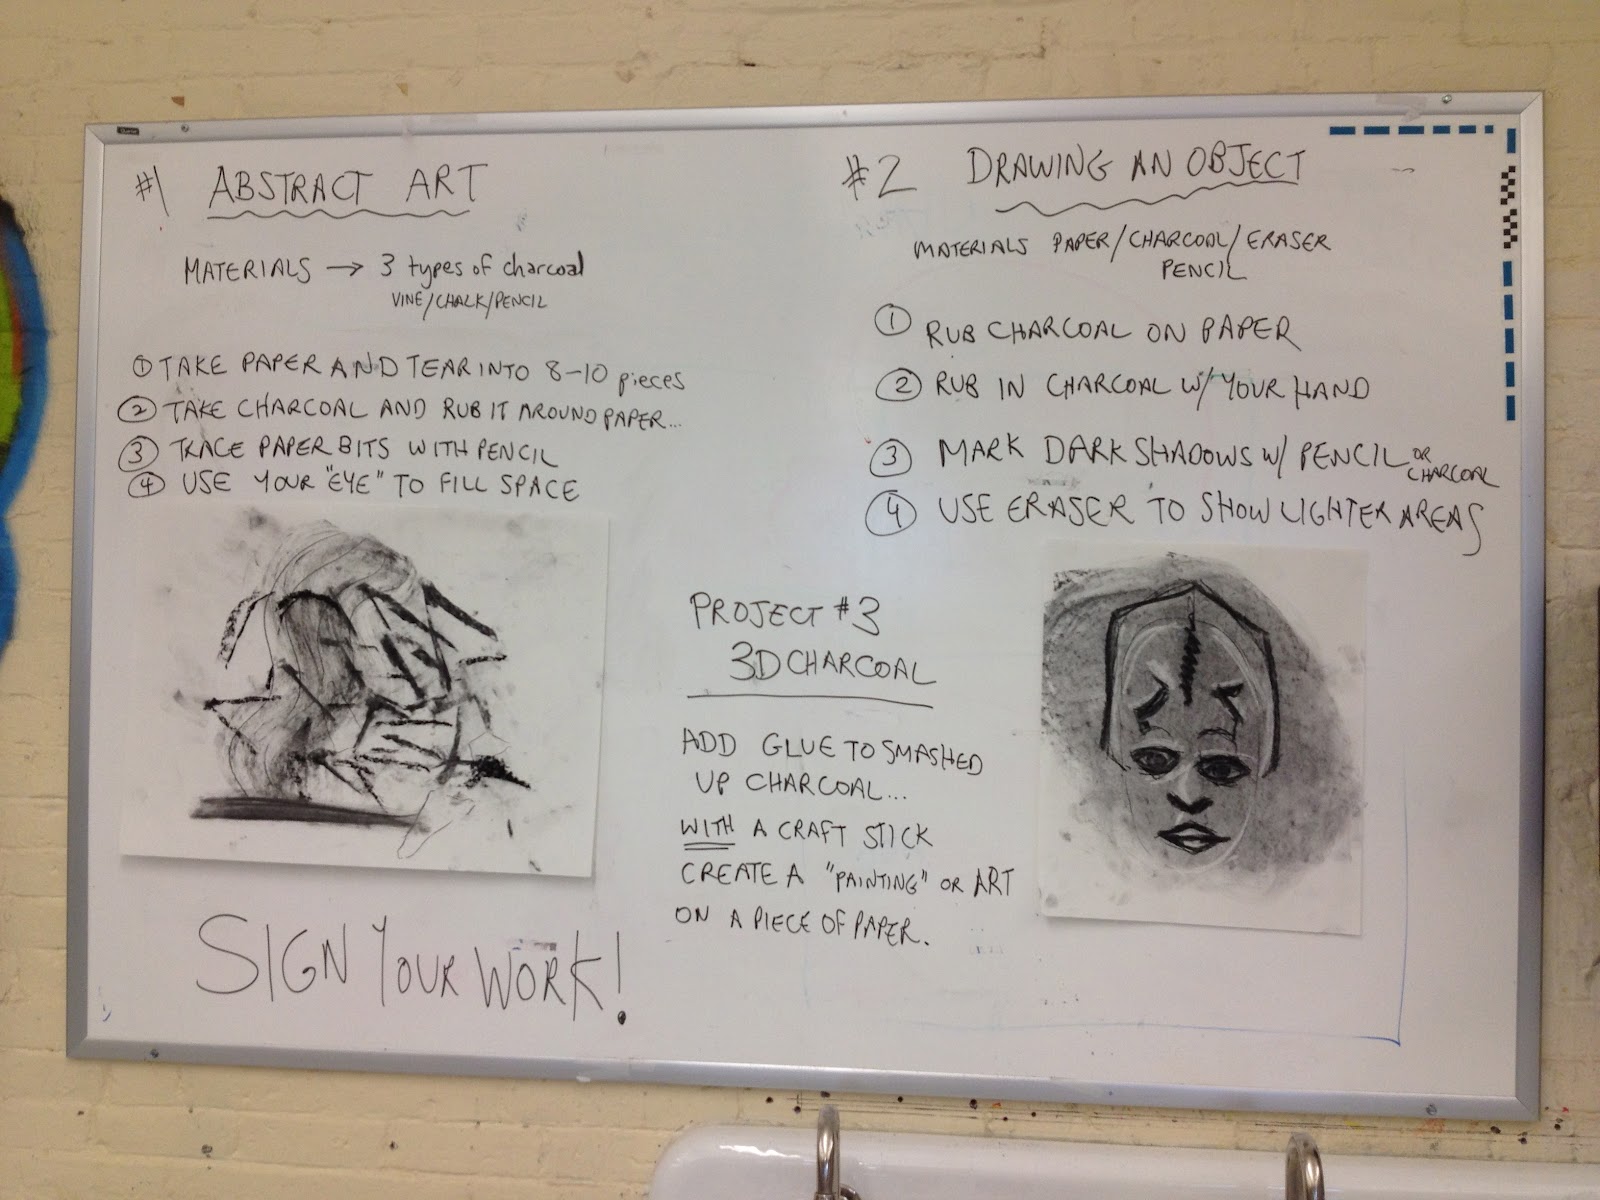 #1 ABSTRACT ART
MATERIALS → 3 types of charcoal
VINE/CHALK/PENCIL
① TAKE PAPER AND TEAR INTO 8-10 pieces
② TAKE CHARCOAL AND RUB IT AROUND PAPER...
③ TRACE PAPER BITS WITH PENCIL
④ USE YOUR "EYE" TO FILL SPACE
SIGN YOUR WORK!
#2 DRAWING AN OBJECT
MATERIALS PAPER/CHARCOAL/ERASER
PENCIL
① RUB CHARCOAL ON PAPER
② RUB IN CHARCOAL W/ YOUR HAND
③ MARK DARK SHADOWS W/ PENCIL OR
CHARCOAL
④ USE ERASER TO SHOW LIGHTER AREAS
PROJECT #3
3D CHARCOAL
ADD GLUE TO SMASHED
UP CHARCOAL...
WITH A CRAFT STICK
CREATE A "PAINTING" OR ART
ON A PIECE OF PAPER.